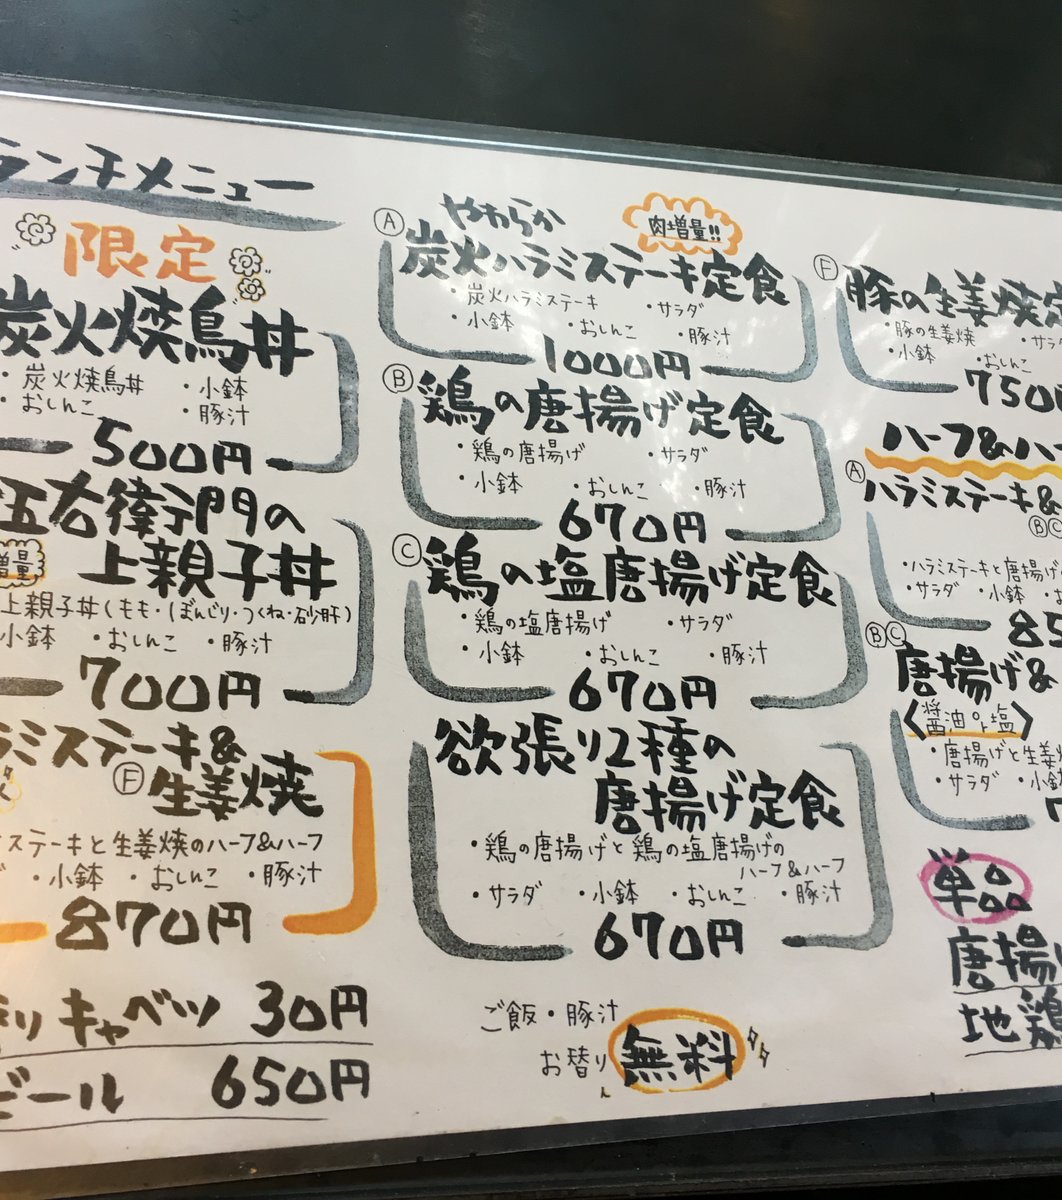 ランチメニュー
限定
炭火焼鳥丼
・炭火焼鳥丼 ・小鉢
・おしんこ ・豚汁
500円
五右衛門の
増量
上親子丼
上親子丼(もも・ぼんじり・つくね・砂肝)
小鉢 ・おしんこ ・豚汁
700円
ラミステーキ&
Ⓕ生姜焼
ステーキと生姜焼のハーフ&ハーフ
・小鉢 ・おしんこ ・豚汁
870円
キャベツ 30円
ビール 650円
Ⓐ やわらか
肉増量!!
炭火ハラミステーキ定食
・炭火ハラミステーキ ・サラダ
・小鉢 ・おしんこ ・豚汁
1000円
Ⓑ 鶏の唐揚げ定食
・鶏の唐揚げ ・サラダ
・小鉢 ・おしんこ ・豚汁
670円
Ⓒ 鶏の塩唐揚げ定食
・鶏の塩唐揚げ ・サラダ
・小鉢 ・おしんこ ・豚汁
670円
欲張り2種の
唐揚げ定食
・鶏の唐揚げと鶏の塩唐揚げの
ハーフ&ハーフ
・サラダ ・小鉢 ・おしんこ ・豚汁
670円
ご飯・豚汁
お替り 無料
Ⓕ 豚の生姜焼定
・豚の生姜焼 ・サラ
・小鉢 ・おしんこ
750
ハーフ&ハ
Ⓐ
ハラミステーキ&
ⒷⒸ
・ハラミステーキと唐揚げ
・サラダ ・小鉢 ・お
85
ⒷⒸ
唐揚げ&
〈醤油or塩〉
・唐揚げと生姜焼
・サラダ ・小鉢
単品
唐揚げ
地鶏